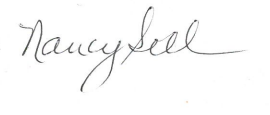 Nancy Sell